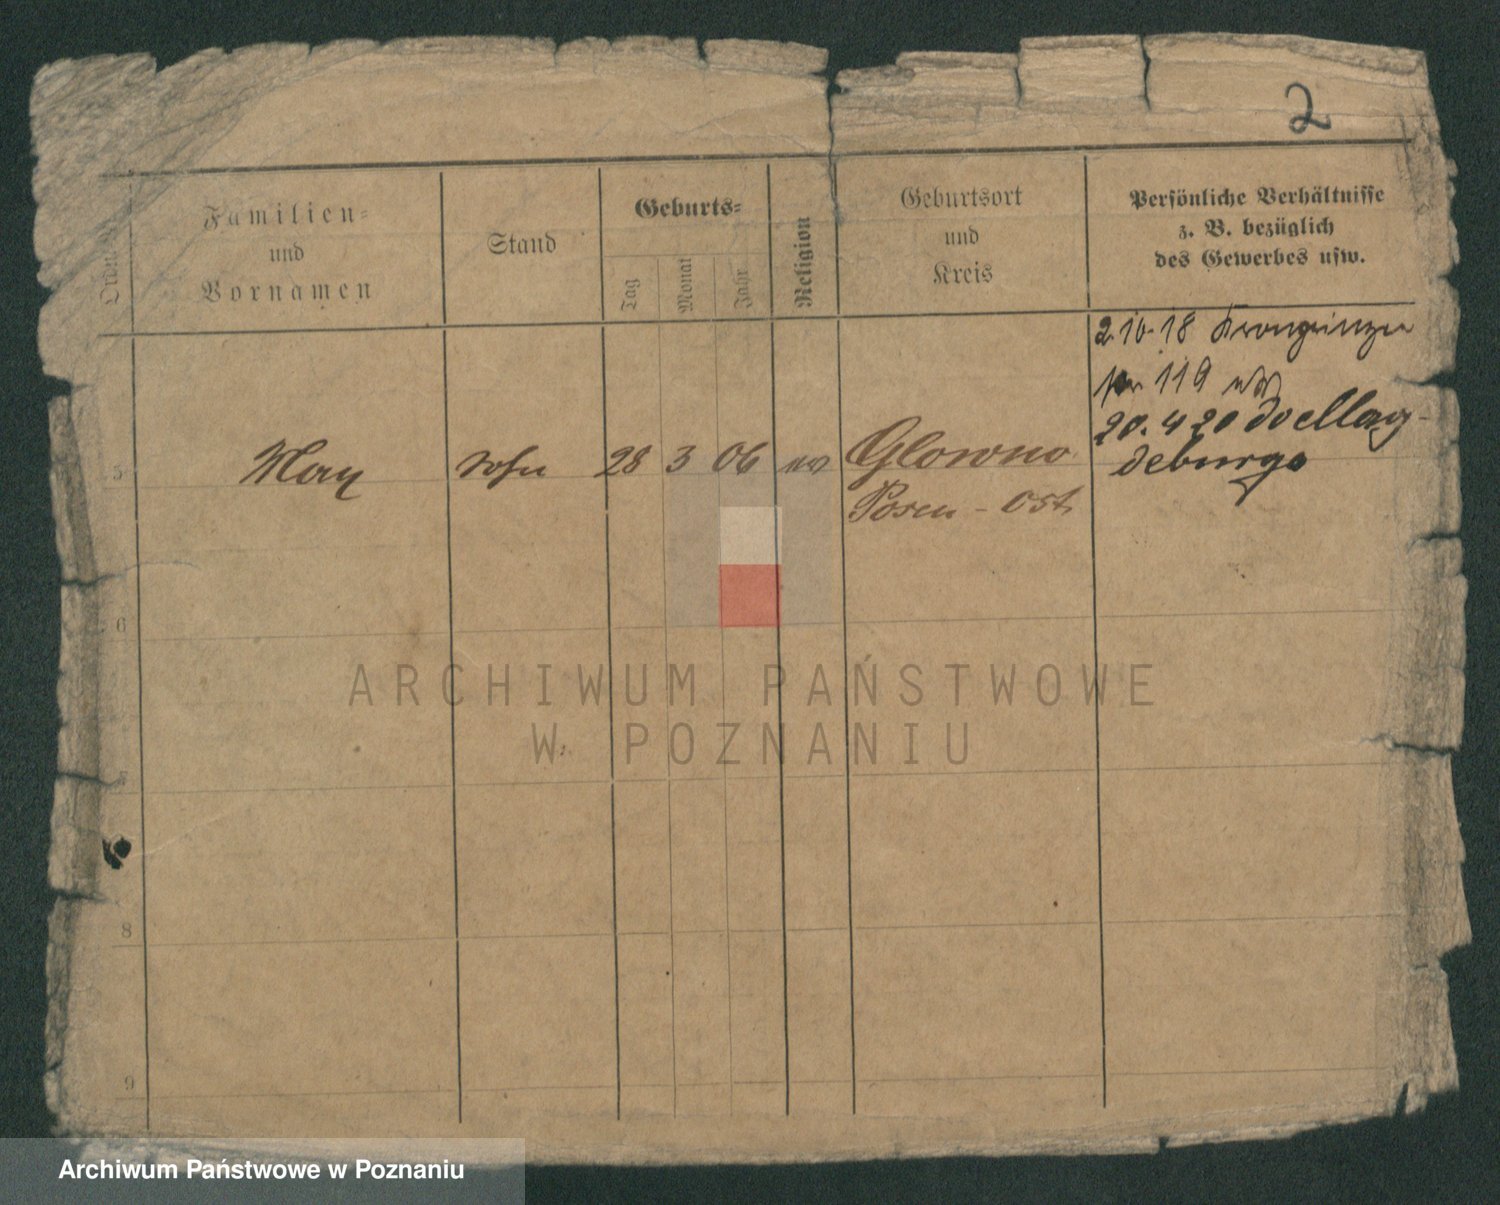 2
Familien-
und
Vornamen
Stand
Geburts-
Tag
Monat
Jahr
Religion
Geburtsort
und
Kreis
Persönliche Verhältnisse
z. B. bezüglich
des Gewerbes usw.
2.10.18 Kronprinzen
119
20.4 20
deburgo
5
28 3 06
Glowno
Posen - Ost
6
8
9
ARCHIWUM PAŃSTWOWE
W POZNANIU
Archiwum Państwowe w Poznaniu